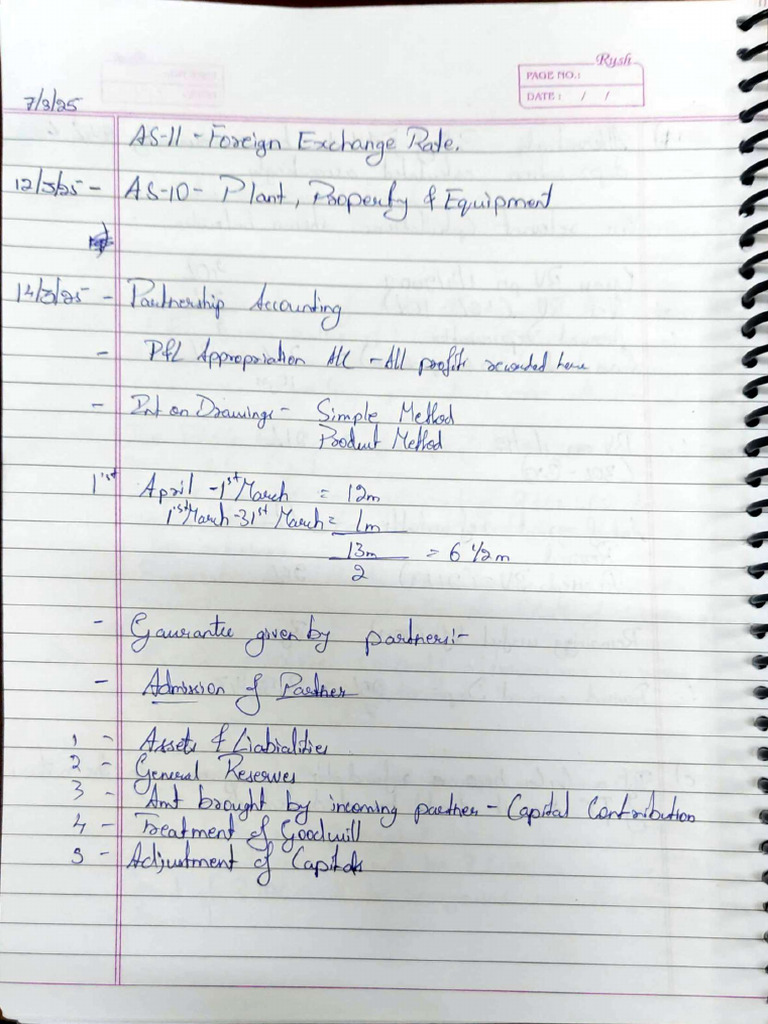 Rysh
PAGE NO.:
DATE: / /
7/3/25
AS-11 - Foreign Exchange Rate.
12/3/25 - AS-10 - Plant, Property & Equipment
14/3/25 - Partnership Accounting
- P&L Appropriation A/C - All profits recorded here
- Int on Drawings - Simple Method
Product Method
1st April - 1st March = 12m
1st March - 31st March = 1m
13m = 6 1/2m
2
- Gaurantee given by partners:-
- Admission of Partner
1 - Assets & Liabialities
2 - General Reserves
3 - Amt brought by incoming partner - Capital Contribution
4 - Treatment of Goodwill
5 - Adjustment of Capitals